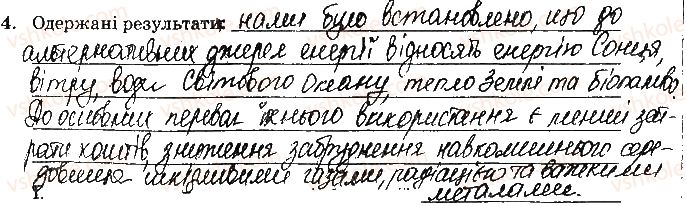 4. Одержані результати: нами було встановлено, що до
альтернативних джерел енергії відносять енергію Сонця,
вітру, води Світового океану, тепло Землі та біопаливо.
До основних переваг їхнього використання є менші зат-
рати коштів, зниження забруднення навколишнього сере-
довища шкідливими газами, радіацією та важкими
1. металами.